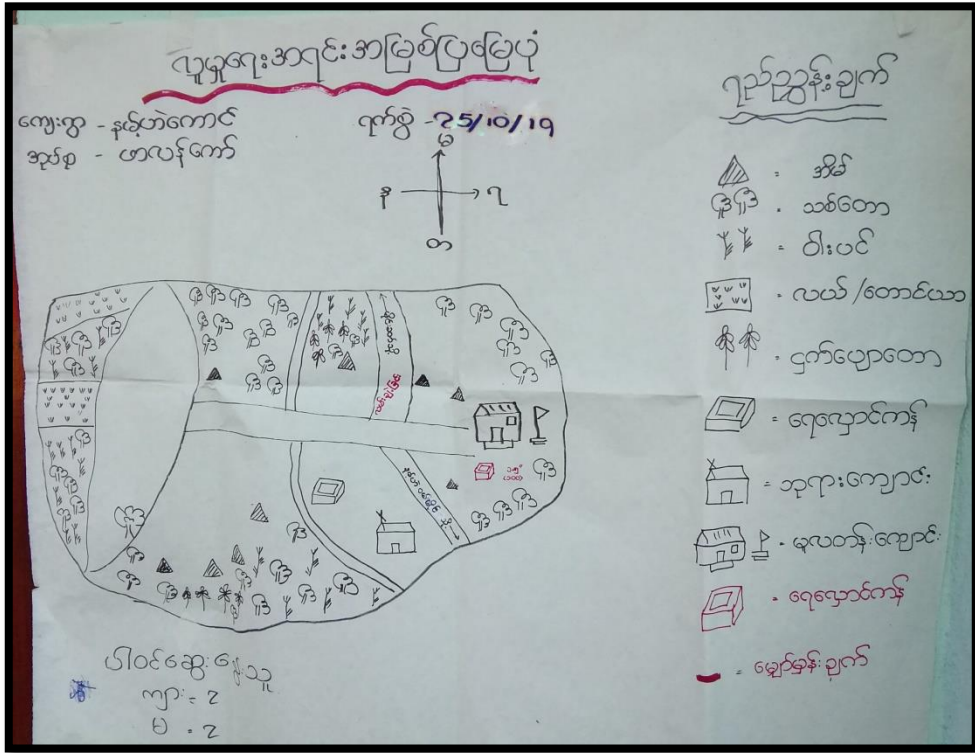 လူမှုရေးအရင်းအမြစ်ပြမြေပုံ
ကျေးရွာ - နမ့်ဟဲကောင်
အုပ်စု - ဟာလန်ကော်
ရက်စွဲ - 25/10/19
မ
န ရ
တ
ရည်ညွှန်းချက်
= အိမ်
= သစ်တော
= ဝါးပင်
= လယ်/တောင်ယာ
= ငှက်ပျောတော
= ရေလှောင်ကန်
= ဘုရားကျောင်း
= မူလတန်းကျောင်း
= ရေလှောင်ကန်
= မျှော်မှန်းချက်
ပါဝင်ဆွေးနွေးသူ
ကျား = ၃
မ = ၃